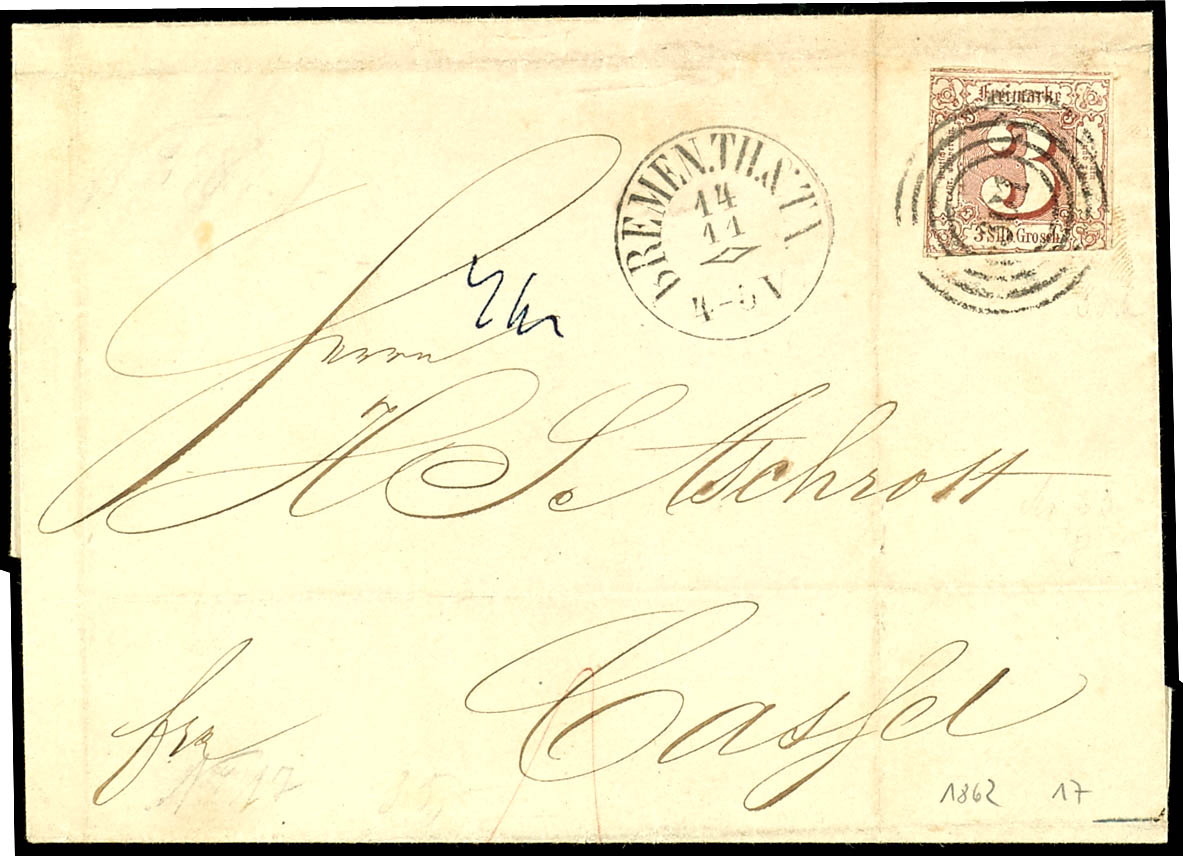 Freimarke
3
3 Silb. Grosch.
BREMEN. TH. & TA
14
11
4-5 V
Herrn
H S. Aschrott
fra
Cassel
1862 17